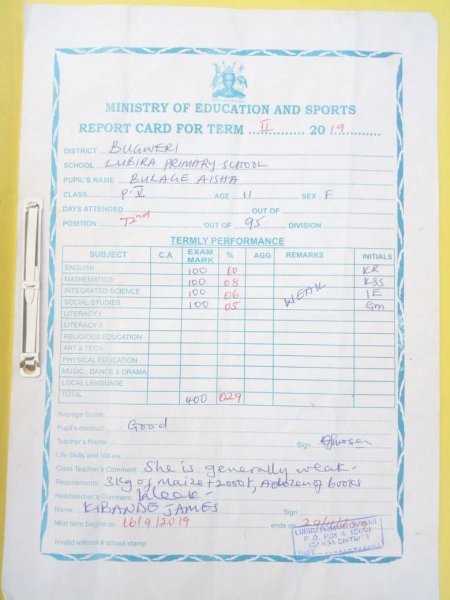 MINISTRY OF EDUCATION AND SPORTS
REPORT CARD FOR TERM II 2019
DISTRICT BUGWERI
SCHOOL LUBIRA PRIMARY SCHOOL
PUPIL'S NAME BULAGE AISHA
CLASS P.V AGE 11 SEX F
DAYS ATTENDED OUT OF
POSITION 72nd OUT OF 95 DIVISION
TERMLY PERFORMANCE
SUBJECT C.A EXAM MARK % AGG REMARKS INITIALS
ENGLISH 100 10 KR
MATHEMATICS 100 08 KSS
INTEGRATED SCIENCE 100 06 WEAK IE
SOCIAL STUDIES 100 05 Gm
LITERACY I
LITERACY II
RELIGIOUS EDUCATION
ART & TECH
PHYSICAL EDUCATION
MUSIC, DANCE & DRAMA
LOCAL LANGUAGE
TOTAL 400 029
Average Score
Pupil's conduct: Good
Teacher's Name Sign
Life Skills and Values
Class Teacher's Comment She is generally weak-
Requirements: 3kg of maize + 2000/=, books
Headteacher's Comment Weak-
Name: KIBANDE JAMES Sign
Next term begins on 16/9/2019 ends on
LUBIRA PRIMARY SCHOOL
P. O. BOX
DATE
Invalid without a school stamp